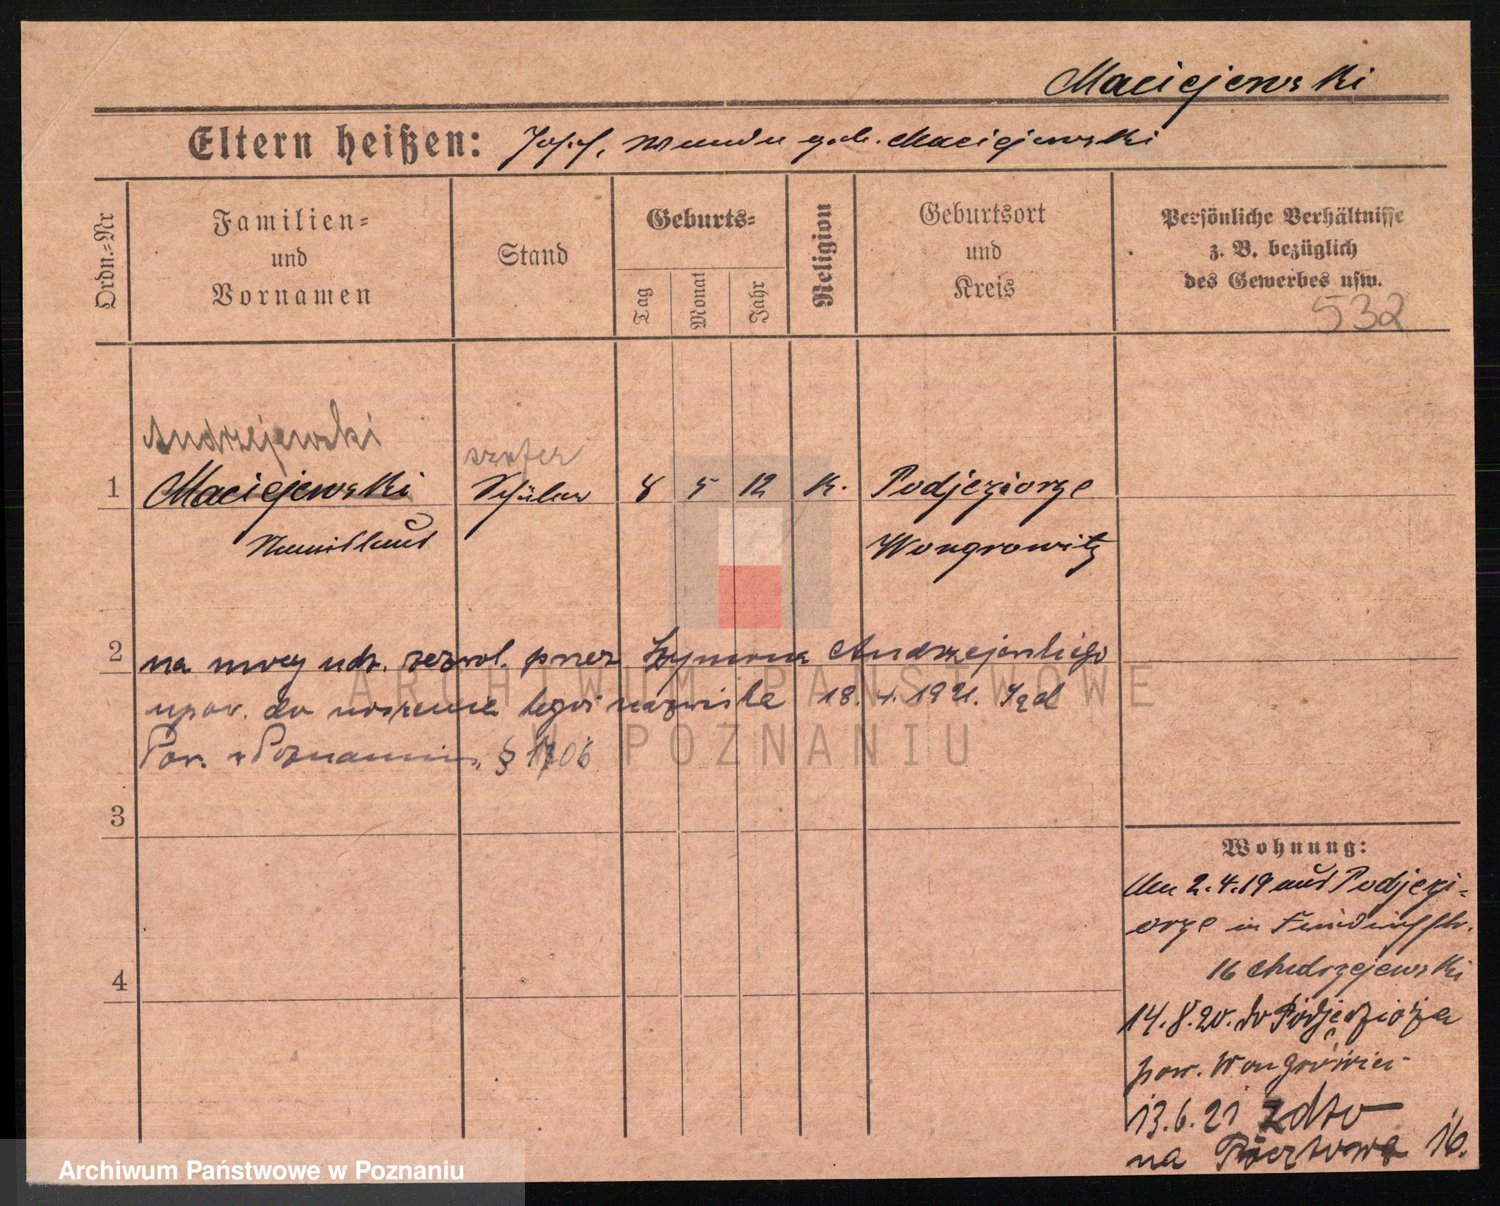 Maciejewski
Eltern heißen: Josef, Wanda geb. Maciejewski
Ordn.-Nr
Familien-
und
Vornamen
Stand
Geburts-
Tag
Monat
Jahr
Religion
Geburtsort
und
Kreis
Persönliche Verhältnisse
z. B. bezüglich
des Gewerbes usw.
532
Andrzejewski
szofer
1 Maciejewski Schüler 8 5 12 K. Podjeziorze
Stanislaus Wongrowitz
2
na mocy udz. zezwol. przez Szymona Andrzejewskiego
upow. do noszenia tegoż nazwiska 18. 4. 1921. Sąd
Pow. w Poznaniu, § 1706
3
4
Wohnung:
Am 2.4.19 aus Podjezi-
orze in
16 Andrzejewski
14.8.20. do Podjeziorza
pow. Wongrówiec
13.6.21 zdto
na Pocztowa 16.
ARCHIWUM PAŃSTWOWE
W POZNANIU
Archiwum Państwowe w Poznaniu